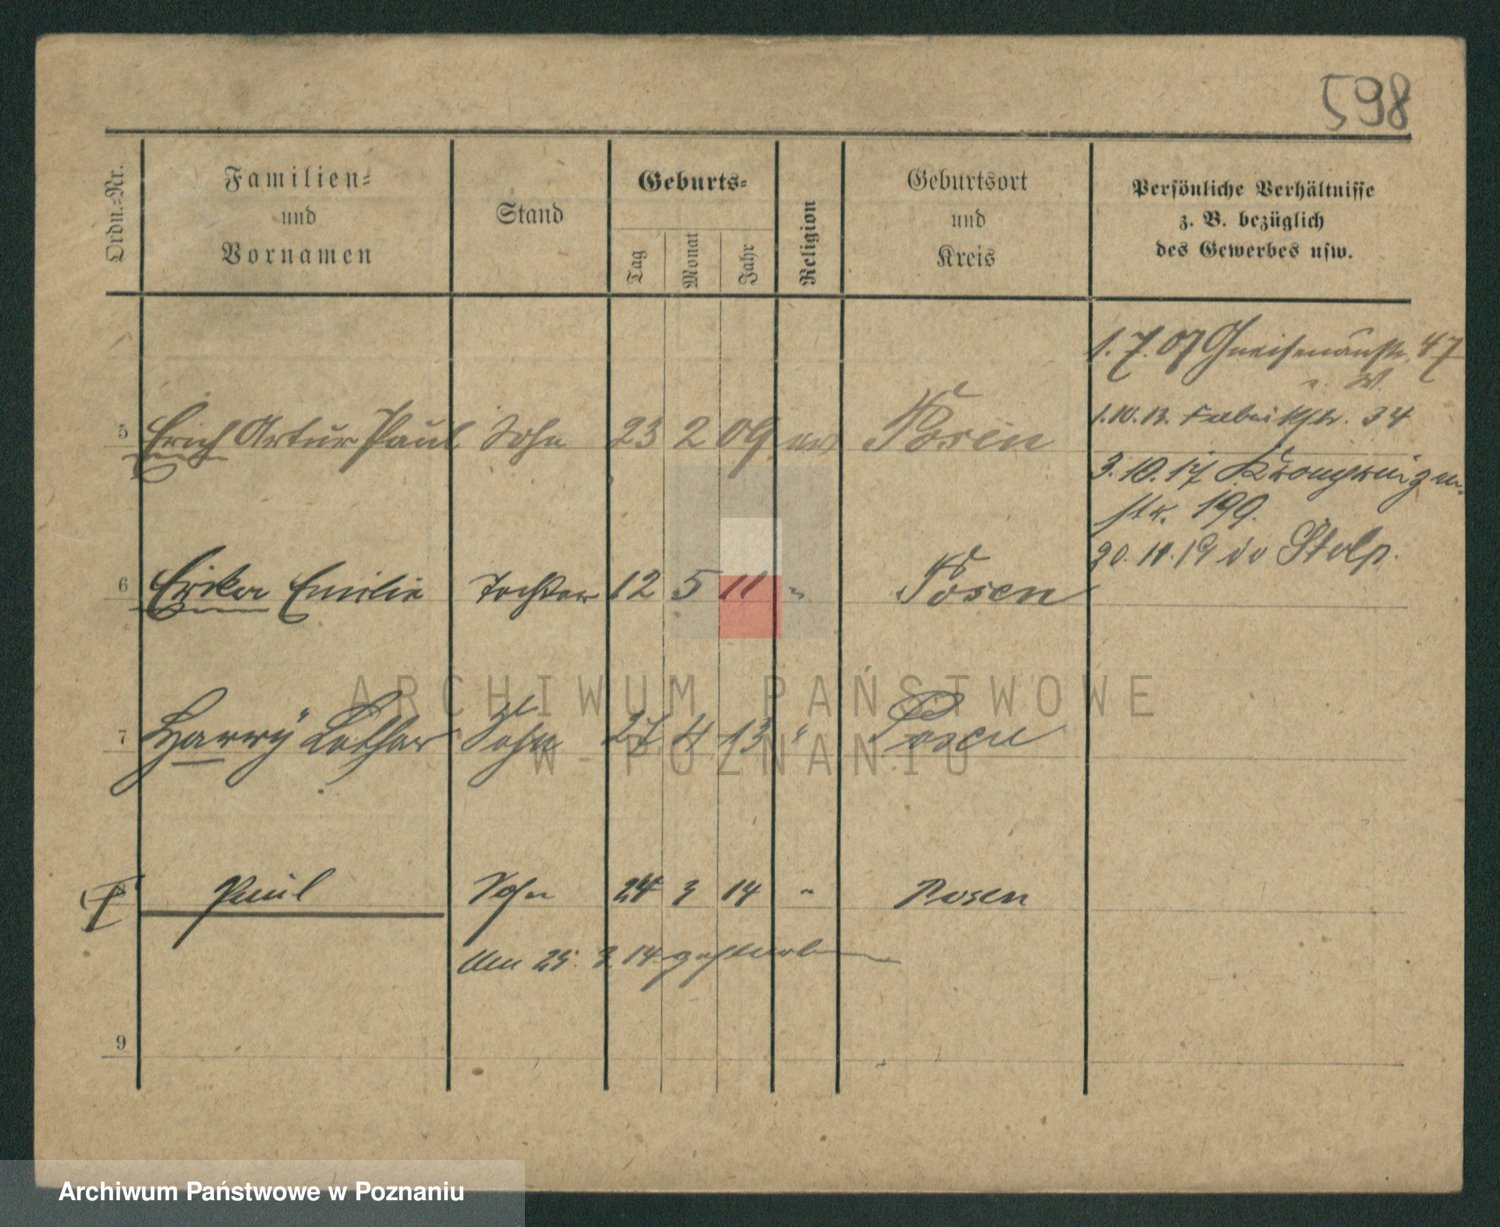 598
Ordn.-Nr.
Familien-
und
Vornamen
Stand
Geburts-
Tag
Monat
Jahr
Religion
Geburtsort
und
Kreis
Persönliche Verhältnisse
z. B. bezüglich
des Gewerbes usw.
1. 7. 07 Gneisenaustr. 47
5 Erich Artur Paul Sohn 23 2 09 ev Posen
1.10.13. Fabrikstr. 34
3.10.17 Kronprinzen
str. 199.
20. 11. 19 do Stolp.
6 Erika Emilie Tochter 12 5 11 " Posen
7 Harry Lothar Sohn 27 4 13 " Posen
Paul Sohn 24 3 14 " Posen
Am 25. 3. 14. gestorben
9
ARCHIWUM PAŃSTWOWE
W POZNANIU
Archiwum Państwowe w Poznaniu